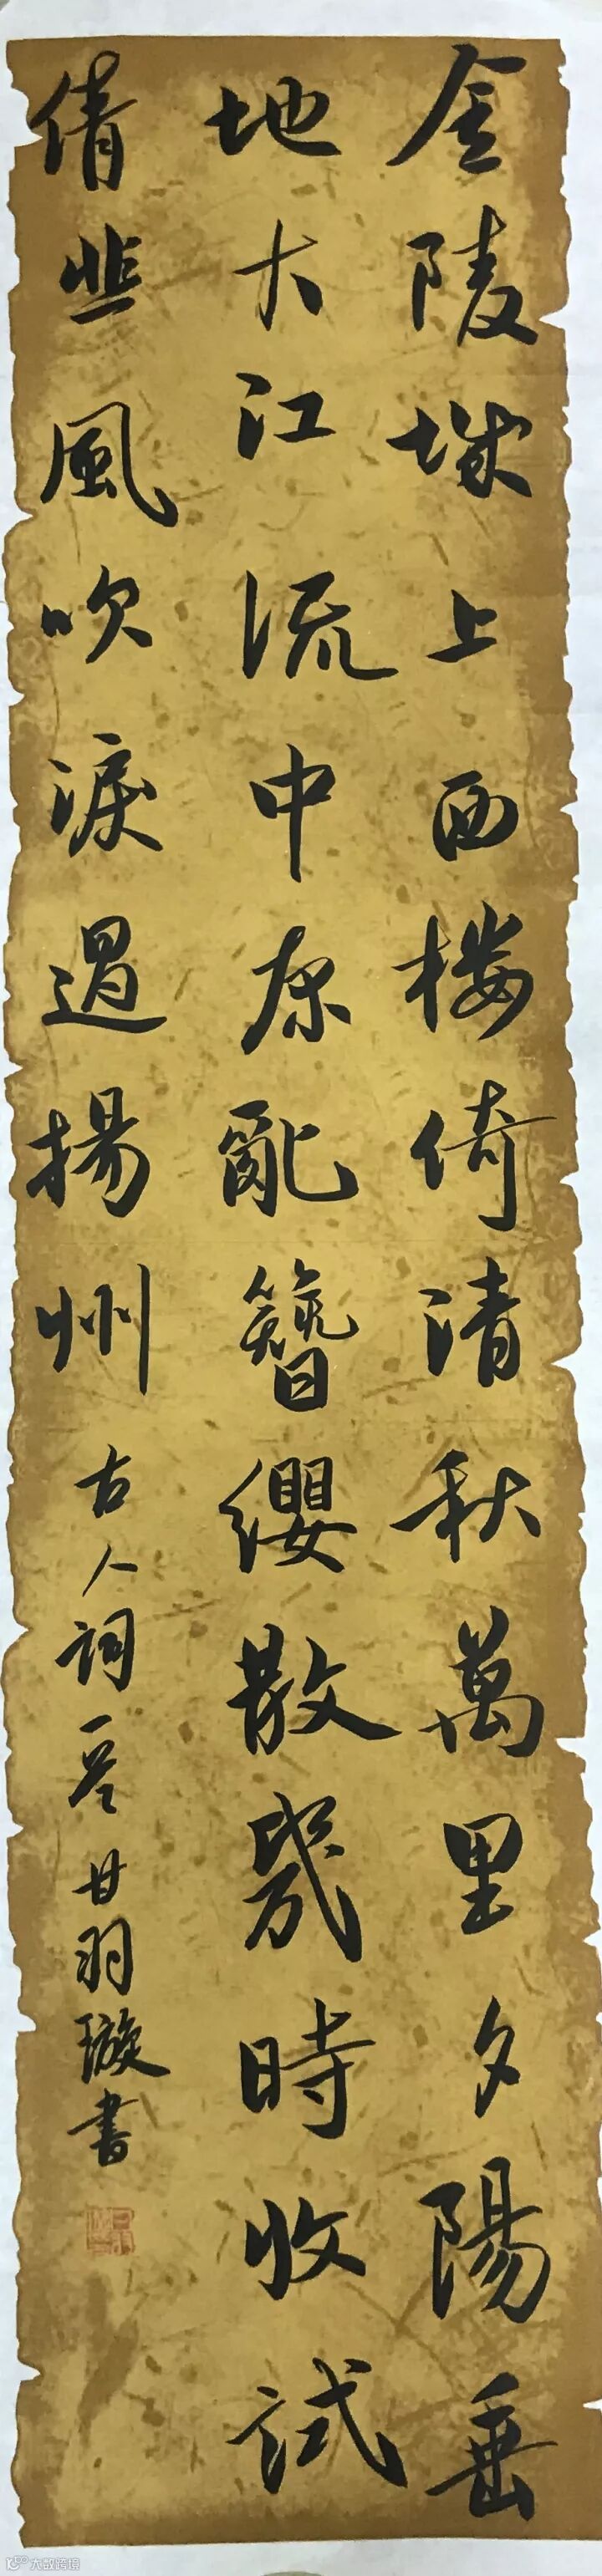 金陵城上西楼倚清秋萬里夕陽垂
地大江流中原亂簪纓散幾時收試
倩悲風吹淚過揚州 古人詞一首 甘羽璇書
大数跨境